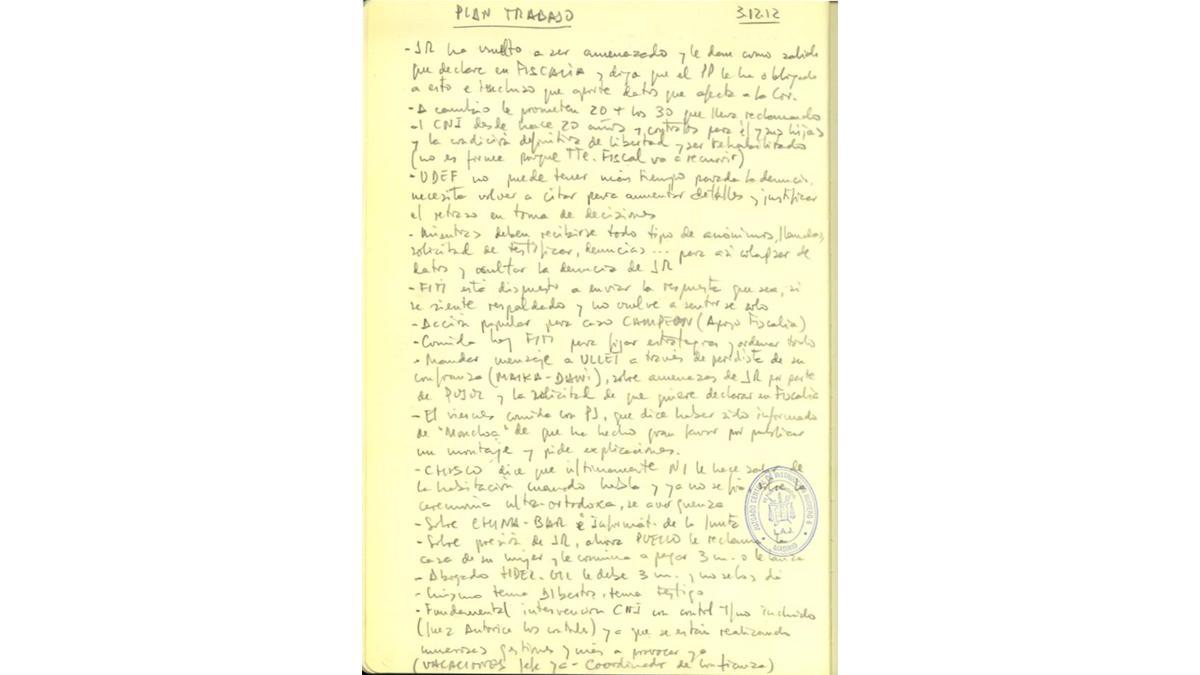 PLAN TRABAJO 3.12.12
- JR ha vuelto a ser amenazado y le dan como salida
que declare en FISCALIA y diga que el PP le ha obligado
a esto e incluso que aporte datos que afecta a la Cor.
- A cambio le prometen 20 + los 30 que lleva reclamando
al CNI desde hace 20 años y contratos para él y sus hijas
y la condición definitiva de libertad y ser rehabilitado
(no es firme porque Tte. Fiscal va a recurrir)
- UDEF no puede tener más tiempo parada la denuncia,
necesita volver a citar para aumentar detalles y justificar
el retraso en toma de decisiones
- Mientras deben recibirse todo tipo de anónimos, llamadas,
solicitud de testificar, denuncias ... para así colapsar de
datos y ocultar la denuncia de JR
- FITI está dispuesto a enviar la respuesta que sea, si
se siente respaldado y no vuelve a sentirse solo
- Acción popular para caso CAMPEON (Apoyo Fiscalía)
- Comida hoy FITI para fijar estrategias y ordenar todo
- Mandar mensaje a ULLET a través de periodista de su
confianza (MAIKA - DANI), sobre amenazas de JR por parte
de PUJOL y la solicitud de que quiere declarar en Fiscalía
- El viernes comida con PJ, que dice haber sido informado
de "Moncloa" de que ha hecho gran favor por publicar
un montaje y pide explicaciones.
- CHISCO dice que últimamente NI le hace salir de
la habitación cuando habla y ya no se fía sobre la
ceremonia ultra-ortodoxa, se avergüenza
- Sobre CHINA - BAR e Informát. de la Junta
- Sobre presión de JR, ahora le reclama la
casa de su mujer y le conmina a pagar 3 m. o le lanza
- Abogado FIDEL. GIL le debe 3 m. y no se los dá
- Mismo tema Alberto, tema testigo
- Fundamental intervención CNI con control Tfno incluido
(Juez Autorice los controles) ya que se están realizando
numerosas gestiones y más a provocar ya
(VACACIONES Jefe ya - Coordinador de confianza)
JUZGADO CENTRAL DE INSTRUCCION NUMERO 6
L.A.J.
MADRID